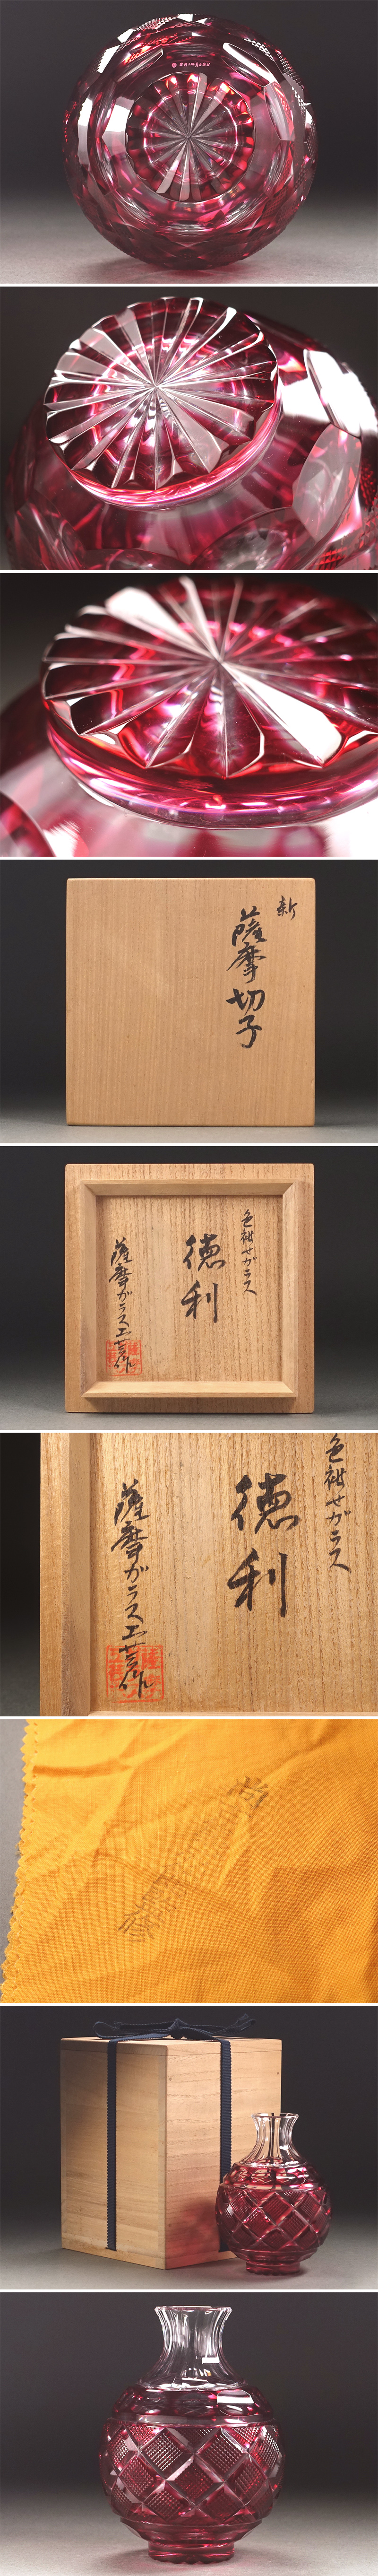 SHIMADZU
新
薩摩切子
色被せガラス
徳利
薩摩ガラス工芸作
色被せガラス
徳利
薩摩ガラス工芸作